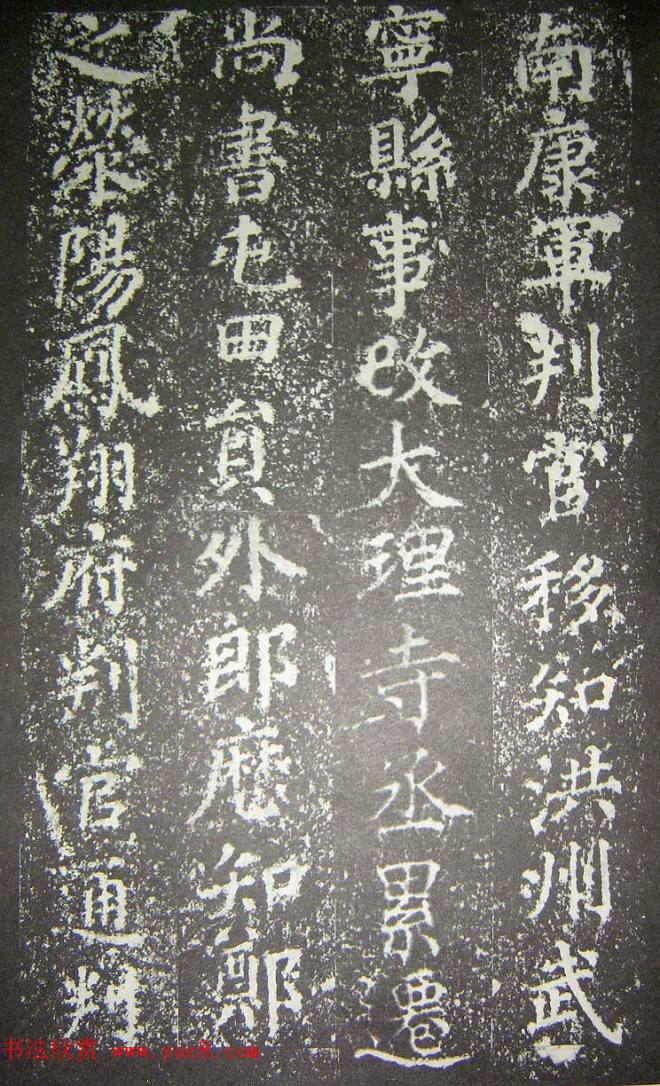 南康軍判官移知洪州武
寧縣事改大理寺丞累遷
尚書屯田員外郎歷知鄭
之滎陽鳳翔府判官通判
书法欣赏 www.yac8.com